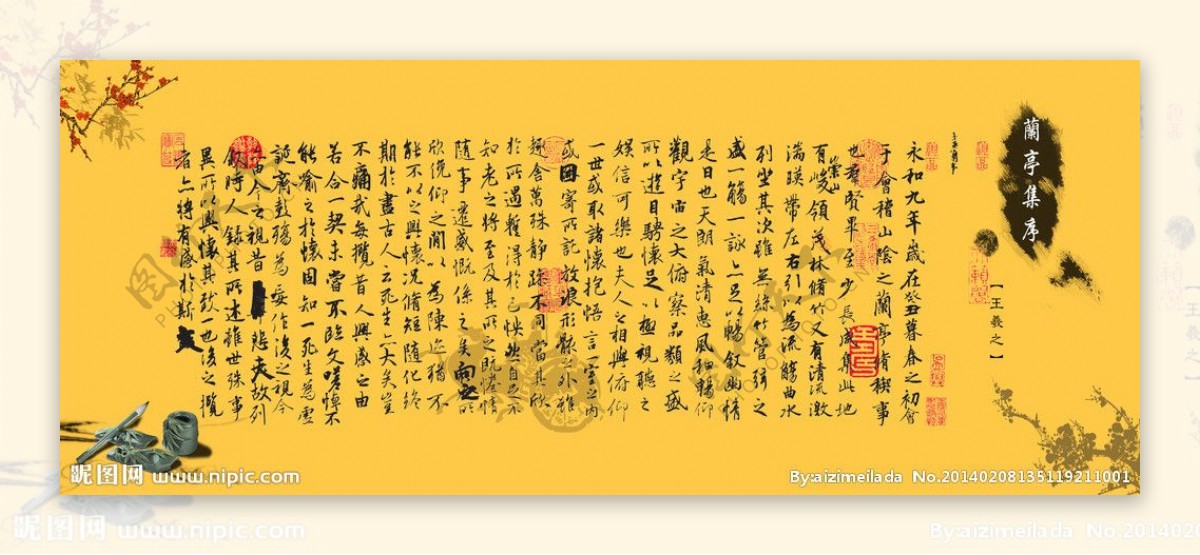 蘭亭集序
【王羲之】
永和九年歲在癸丑暮春之初會
于會稽山陰之蘭亭脩稧事
也群賢畢至少長咸集此地
有崇山峻領茂林脩竹又有清流激
湍暎帶左右引以為流觴曲水
列坐其次雖無絲竹管弦之
盛一觴一詠亦足以暢敘幽情
是日也天朗氣清惠風和暢仰
觀宇宙之大俯察品類之盛
所以遊目騁懷足以極視聽之
娛信可樂也夫人之相與俯仰
一世或取諸懷抱悟言一室之內
或因寄所託放浪形骸之外雖
趣舍萬殊靜躁不同當其欣
於所遇暫得於己怏然自足不
知老之將至及其所之既惓情
隨事遷感慨係之矣向之所
欣俛仰之閒以為陳迹猶不
能不以之興懷況脩短隨化終
期於盡古人云死生亦大矣豈
不痛哉每攬昔人興感之由
若合一契未嘗不臨文嗟悼不
能喻之於懷固知一死生為虛
誕齊彭殤為妄作後之視今
亦由今之視昔悲夫故列
敘時人錄其所述雖世殊事
異所以興懷其致一也後之攬
者亦將有感於斯文
昵图网 www.nipic.com
By:aizimeilada No.20140208135119211001
昵图网 www.nipic.com
By:aizimeilada No.201402